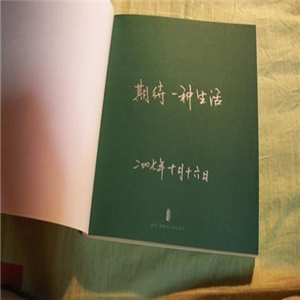 期待一种生活
二〇〇七年十月十六日